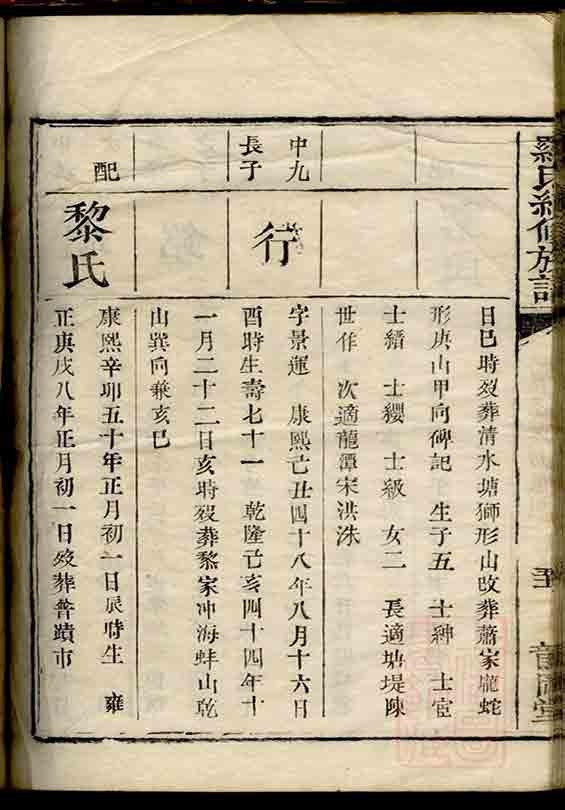 羅氏續修族譜
日巳時歿葬清水塘獅形山改葬蕭家壠蛇
形庚山甲向碑記 生子五 士紳 士宦
士縉 士纓 士級 女二 長適塘堤陳
世作 次適龍潭宋洪洙
中九
長子
行
字景運 康熙己丑四十八年八月十六日
酉時生壽七十一 乾隆己亥四十四年十
一月二十二日亥時歿葬黎家冲海蚌山乾
山巽向兼亥巳
配
黎氏
康熙辛卯五十年正月初一日辰時生 雍
正庚戌八年正月初一日歿葬普蹟市